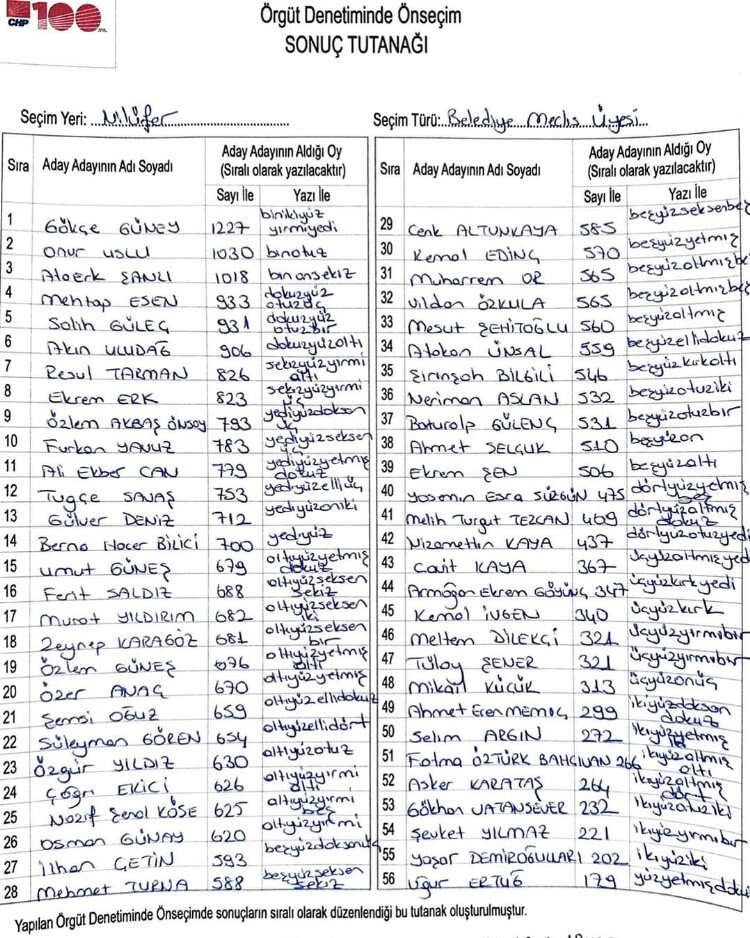 CHP 100.YIL
Örgüt Denetiminde Önseçim
SONUÇ TUTANAĞI
Seçim Yeri: Nilüfer
Seçim Türü: Belediye Meclis Üyesi
Sıra Aday Adayının Adı Soyadı Aday Adayının Aldığı Oy
(Sıralı olarak yazılacaktır)
Sayı İle Yazı İle
1 Gökçe GÜNEY 1227 binikiyüz yirmiyedi
2 Onur USLU 1030 binotuz
3 Ataerk ŞANLI 1018 binonsekiz
4 Mehtap ESEN 933 dokuzyüz otuzüç
5 Salih GÜLEÇ 931 dokuzyüz otuzbir
6 Akın ULUDAĞ 906 dokuzyüzaltı
7 Resul TARMAN 826 sekizyüzyirmi altı
8 Ekrem ERK 823 sekizyüzyirmi üç
9 Özlem AKBAŞ ÖNSOY 793 yediyüzdoksan üç
10 Furkan YAVUZ 783 yediyüzseksen üç
11 Ali Ekber CAN 779 yediyüzyetmiş dokuz
12 Tuğçe SAVAŞ 753 yediyüzelliüç
13 Gülver DENİZ 712 yediyüzoniki
14 Berna Hacer BİLİCİ 700 yediyüz
15 Umut GÜNEŞ 679 altıyüzyetmiş dokuz
16 Ferit SALDIZ 688 altıyüzseksen sekiz
17 Murat YILDIRIM 682 altıyüzseksen iki
18 Zeynep KARAGÖZ 681 altıyüzseksen bir
19 Özlem GÜNEŞ 676 altıyüzyetmiş altı
20 Özer ANAÇ 670 altıyüzyetmiş
21 Şemsi OĞUZ 659 altıyüzellidokuz
22 Süleyman GÖREN 654 altıyüzellidört
23 Özgür YILDIZ 630 altıyüzotuz
24 Çağrı EKİCİ 626 altıyüzyirmi altı
25 Nazif Şenol KÖSE 625 altıyüzyirmi beş
26 Osman GÜNAY 620 altıyüzyirmi
27 İlhan ÇETİN 593 beşyüzdoksanüç
28 Mehmet TURNA 588 beşyüzseksen sekiz
Sıra Aday Adayının Adı Soyadı Aday Adayının Aldığı Oy
(Sıralı olarak yazılacaktır)
Sayı İle Yazı İle
29 Cenk ALTUNKAYA 585 beşyüzseksenbeş
30 Kemal EDİNÇ 570 beşyüzyetmiş
31 Muharrem OR 565 beşyüzaltmışbe
32 Vildan ÖZKULA 565 beşyüzaltmışbe
33 Mesut ŞEHİTOĞLU 560 beşyüzaltmış
34 Atakan ÜNSAL 559 beşyüzellidokuz
35 Şirinşah BİLGİLİ 546 beşyüzkırkaltı
36 Neriman ASLAN 532 beşyüzotuziki
37 Baturalp GÜLENÇ 531 beşyüzotuzbir
38 Ahmet SELÇUK 510 beşyüzon
39 Ekrem ŞEN 506 beşyüzaltı
40 Yasemin Esra SÜRGÜN 475 dörtyüzyetmiş beş
41 Melih Turgut TEZCAN 469 dörtyüzaltmış dokuz
42 Nizamettin KAYA 437 dörtyüzotuzyedi
43 Cavit KAYA 367 üçyüzaltmışyedi
44 Armağan Ekrem GÖYİNÇ 347 üçyüzkırkyedi
45 Kemal İVGEN 340 üçyüzkırk
46 Meltem DİLEKÇİ 321 üçyüzyirmibir
47 Tülay ŞENER 321 üçyüzyirmibir
48 Mikail KÜÇÜK 313 üçyüzonüç
49 Ahmet Ecen MEMİÇ 299 ikiyüzdoksan dokuz
50 Selim ARGIN 272 ikiyüzyetmiş iki
51 Fatma ÖZTÜRK BAHÇIVAN 266 ikiyüzaltmış altı
52 Asker KARATAŞ 264 ikiyüzaltmış dört
53 Gökhan VATANSEVER 232 ikiyüzotuziki
54 Şevket YILMAZ 221 ikiyüzyirmibir
55 Yaşar DEMİROĞULLARI 202 ikiyüziki
56 Uğur ERTUĞ 179 yüzyetmişdoku
Yapılan Örgüt Denetiminde Önseçimde sonuçların sıralı olarak düzenlendiği bu tutanak oluşturulmuştur.